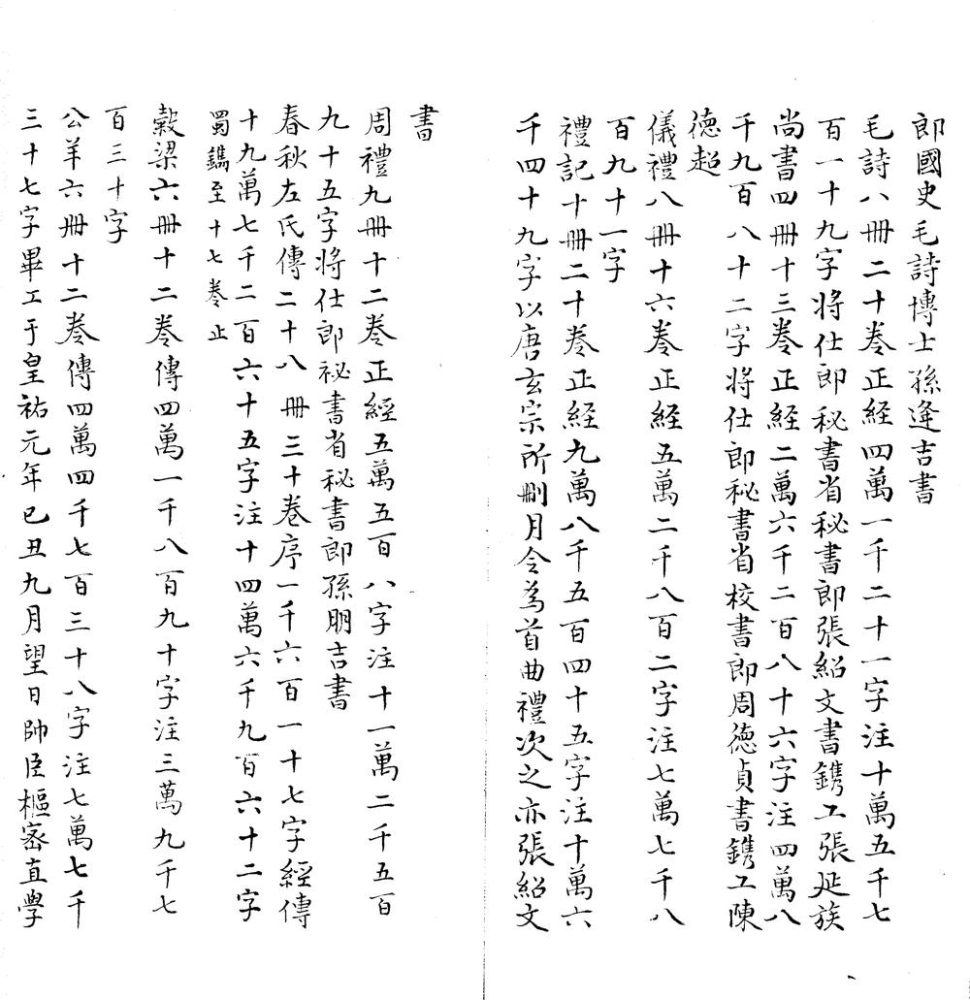 郎國史毛詩博士孫逢吉書
毛詩八冊二十卷正経四萬一千二十一字注十萬五千七
百一十九字將仕郎秘書省秘書郎張紹文書鐫工張延族
尚書四冊十三卷正経二萬六千二百八十六字注四萬八
千九百八十二字將仕郎秘書省校書郎周徳貞書鐫工陳
徳超
儀禮八冊十六卷正経五萬二千八百二字注七萬七千八
百九十一字
禮記十冊二十卷正経九萬八千五百四十五字注十萬六
千四十九字以唐玄宗所刪月令為首曲禮次之亦張紹文
書
周禮九冊十二卷正經五萬五百八字注十一萬二千五百
九十五字將仕郎祕書省秘書郎孫朋吉書
春秋左氏傳二十八冊三十卷序一千六百一十七字經傳
十九萬七千二百六十五字注十四萬六千九百六十二字
蜀鐫至十七卷止
穀梁六冊十二卷傳四萬一千八百九十字注三萬九千七
百三十字
公羊六冊十二卷傳四萬四千七百三十八字注七萬七千
三十七字畢工于皇祐元年己丑九月望日帥臣樞密直學